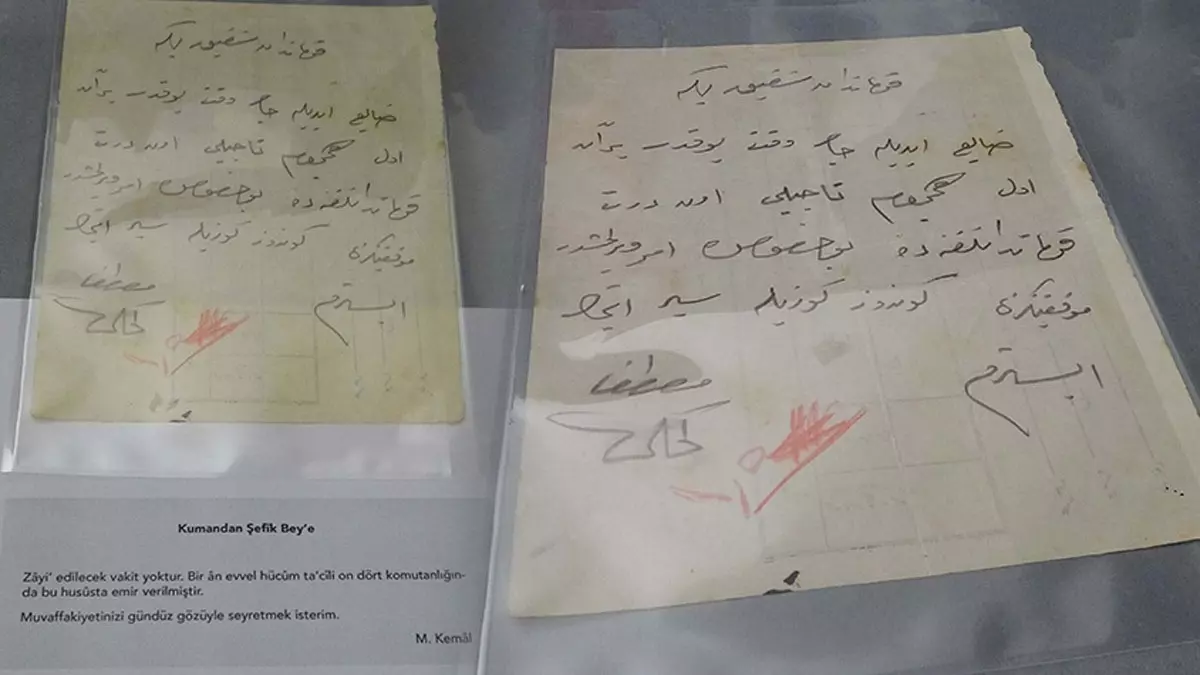 قوماندان شفیق بكه
ضایع ایدیله جك وقت یوقدر بر آن
اول هجوم تاجیلی اون درت
قوماندانلغنده بو خصوص امر ویرلمشدر
موفقیتكزی كوندوز كوزیله سیر ایتمك
ایسترم
مصطفی
كمال
قوماندان شفیق بكه
ضایع ایدیله جك وقت یوقدر بر آن
اول هجوم تاجیلی اون درت
قوماندانلغنده بو خصوص امر ویرلمشدر
موفقیتكزی كوندوز كوزیله سیر ایتمك
ایسترم
مصطفی
كمال
Kumandan Şefik Bey’e
Zâyi’ edilecek vakit yoktur. Bir ân evvel hücûm ta’cîli on dört komutanlığın-
da bu husûsta emir verilmiştir.
Muvaffakiyetinizi gündüz gözüyle seyretmek isterim.
M. Kemâl